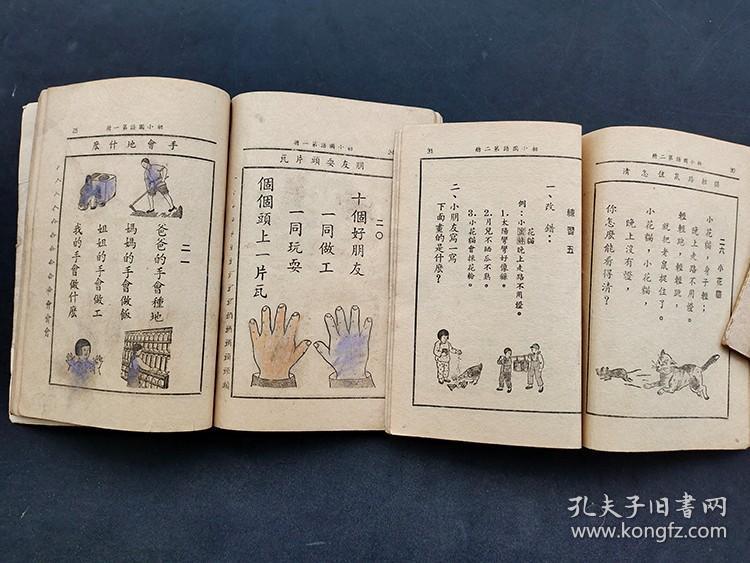 冊一第語國小初
瓦片頭耍友朋
二〇
十個好朋友
一同做工
一同玩耍
個個頭上一片瓦
25
冊一第語國小初
麼什做地會手
二一
爸爸的手會種地
媽媽的手會做飯
姐姐的手會做工
我的手會做什麼
冊二第語國小初
清怎住鼠路輕
二六 小花貓
小花貓，身子輕；
晚上走路不用燈。
輕輕跑，輕輕跳，
就把老鼠捉住了。
小花貓，小花貓，
晚上沒有燈，
你怎麼能看得清？
31
冊二第語國小初
練習五
一、改錯：
花貓
例：小
晚上走路不用燈。
1.太陽彎彎好像鐮。
2.月兒不曬瓜不熟。
3.小花貓會採花
二、小朋友寫一寫
下面畫的是什麼？
孔夫子旧书网
www.kongfz.com